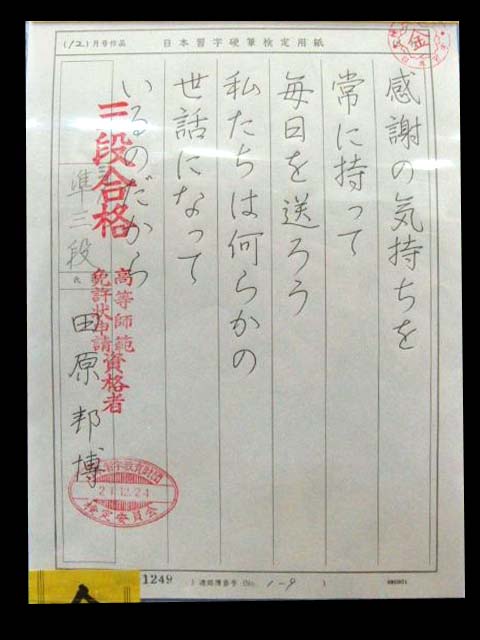 (12)月号作品
日本習字硬筆検定用紙
金
感謝の気持ちを
常に持って
毎日を送ろう
私たちは何らかの
世話になって
いるのだから
三段合格
高等師範資格者
免許状申請
準三段
氏
田原邦博
21.12.24
検定委員会
1249
(No. 1-9 )